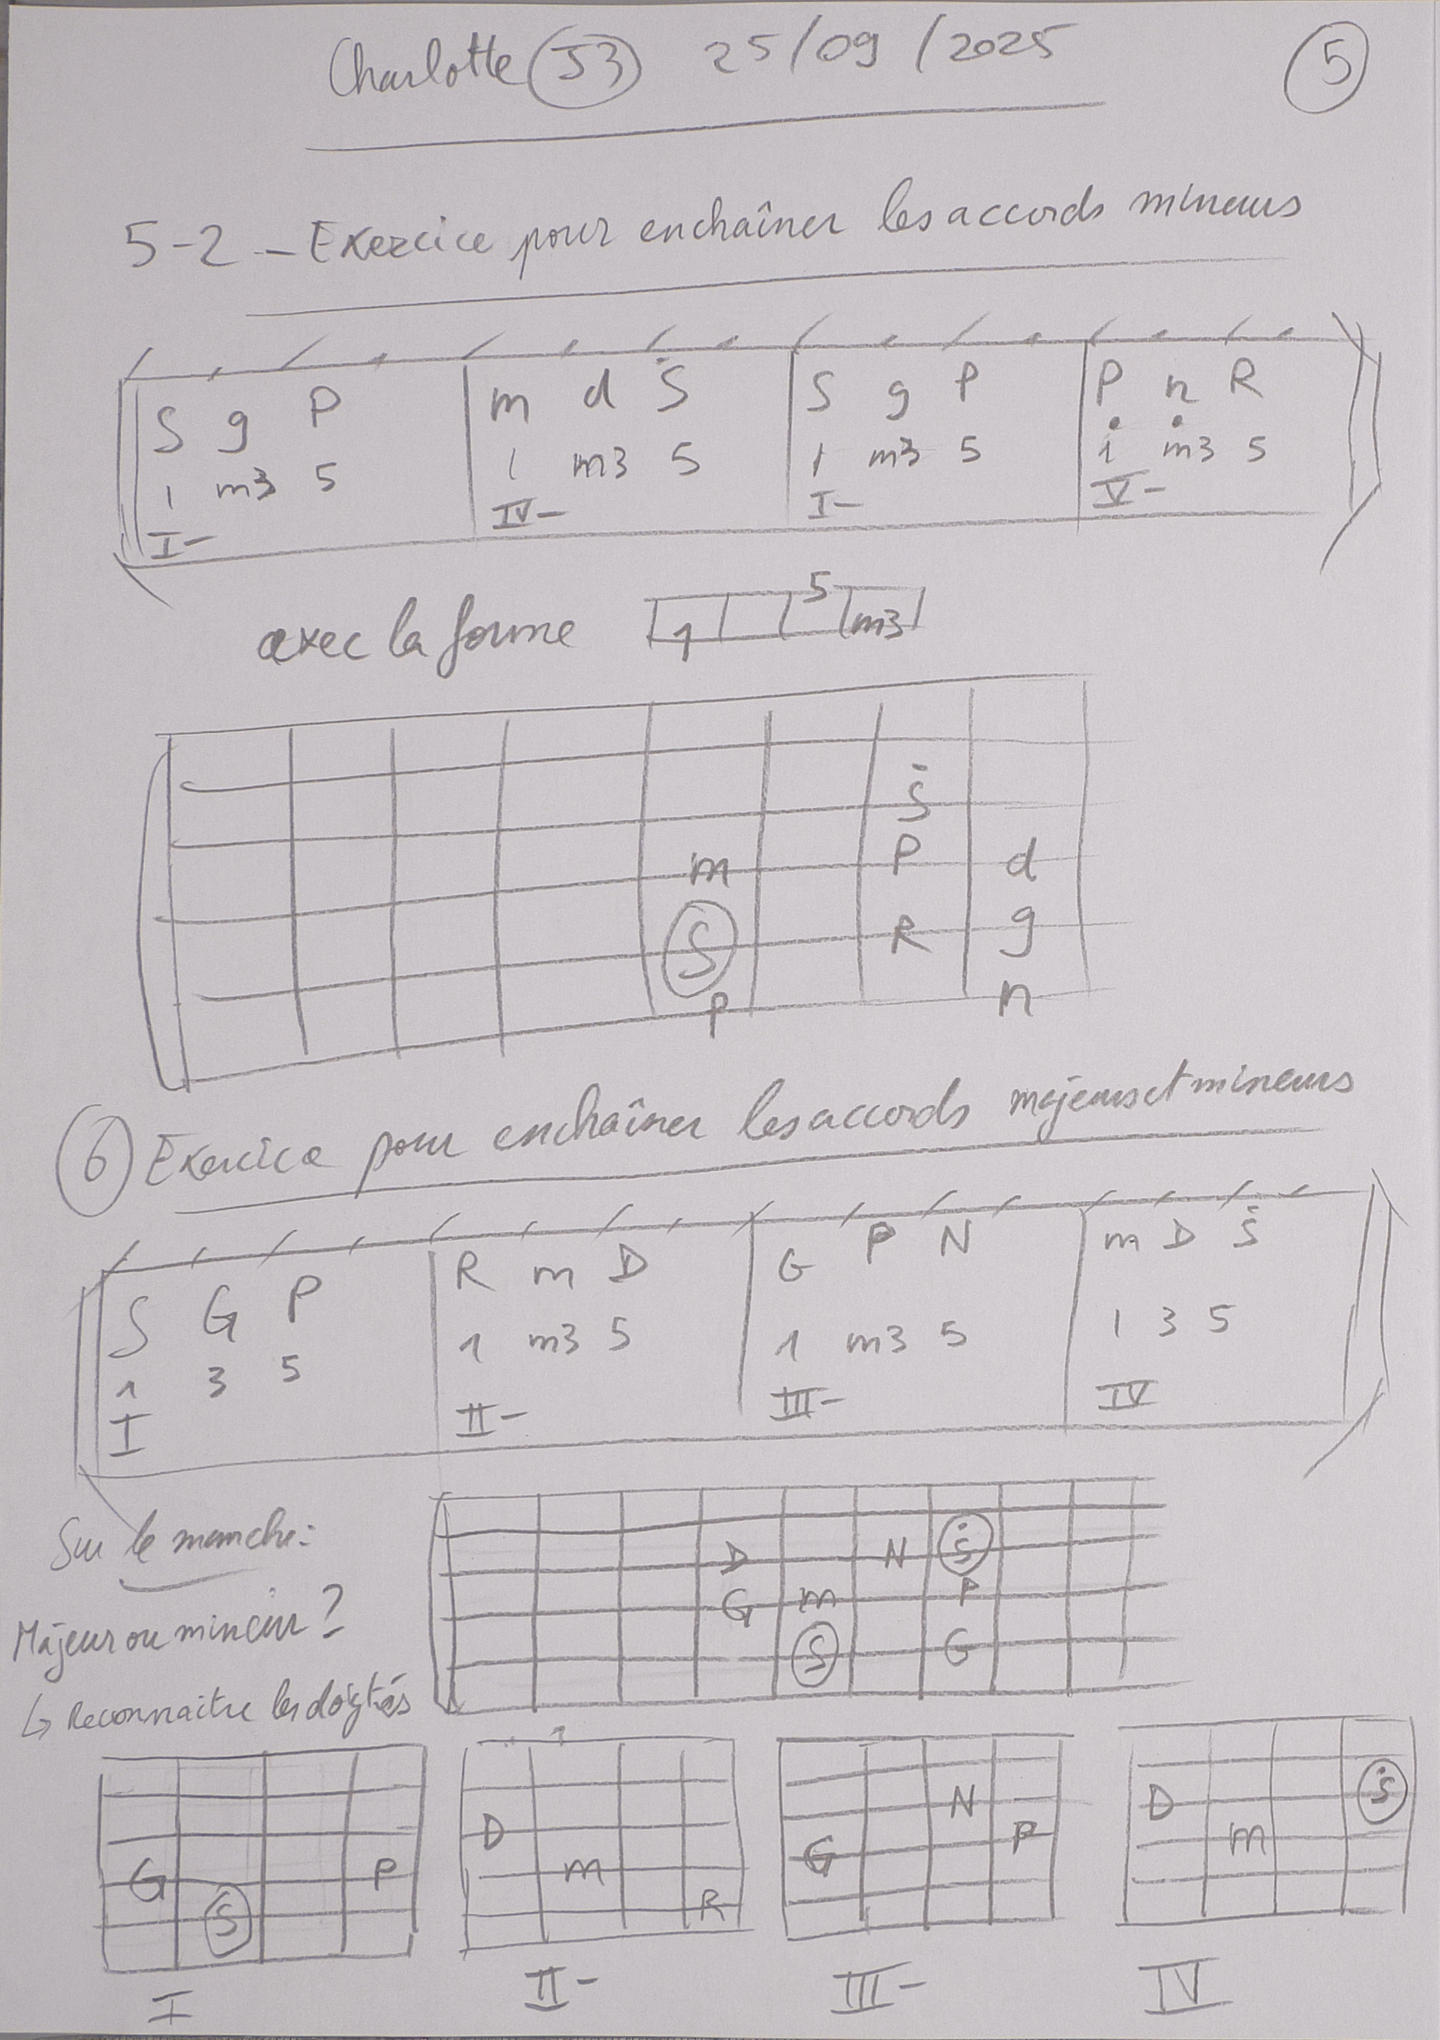 Charlotte J3 25/09/2025 5
5-2 - Exercice pour enchaîner les accords mineurs
S g P m d Ṡ S g P P n R
1 m3 5 1 m3 5 1 m3 5 1 m3 5
I- IV- I- V-
avec la forme 1 5 m3
Ṡ
m P d
S R g
P n
6 Exercice pour enchaîner les accords majeurs et mineurs
S G P R m D G P N m D Ṡ
1 3 5 1 m3 5 1 m3 5 1 3 5
I II- III- IV
Sur le manche:
D N Ṡ
G m P
S G
Majeur ou mineur?
↳ Reconnaitre les doigtés
G S P
D m R
G N P
D m Ṡ
I II- III- IV